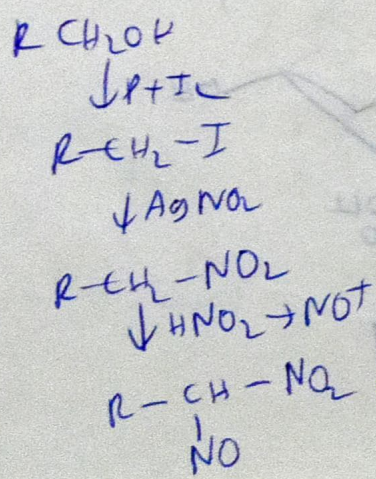 R CH2OH
↓ P+I2
R-CH2-I
↓ AgNO2
R-CH2-NO2
↓ HNO2→NO+
R-CH-NO2
NO